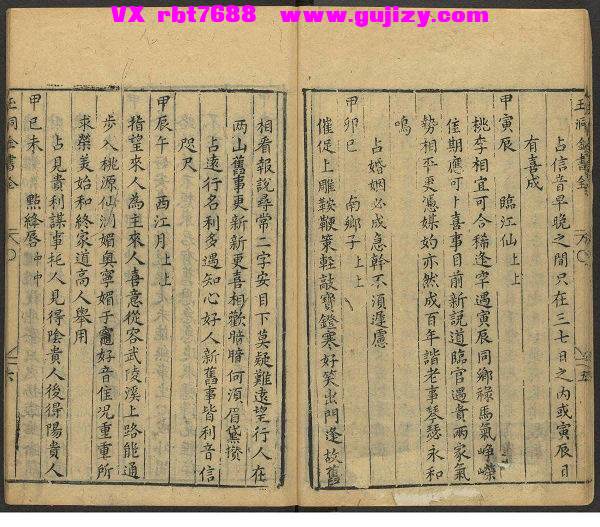 VX rbt7688 www.gujizy.com
占信音早晚之間只在三七日之內或寅辰日
有喜成
甲寅辰 臨江仙上上
桃李相宜可合稀逢罕遇寅辰同鄉祿馬氣崢嶸
佳期應可卜喜事日前新說道臨官遇貴兩家氣
勢相平更憑媒妁亦然成百年諧老事瑟瑟永和
鳴
占婚姻必成急幹不須遲慮
甲卯巳 南鄉子上上
催促上雕鞍鞭策輕敲寶鐙寒好笑出門逢故舊
相看報說尋常二字安目下莫疑難遠望行人在
兩山舊事更新新更喜相歡暗暗何須眉黛攢
占遠行名利多遇知心好人新舊事皆利音信
咫尺
甲辰午 西江月上上
指望來人為主來人喜意從容武陵溪上路能通
步入桃源仙洞媚奧寧媚于竈好音佳況重重所
求榮美始和終家道高人舉用
占見貴利謀事托人見得陰貴人後得陽貴人
甲巳未 點絳唇中中